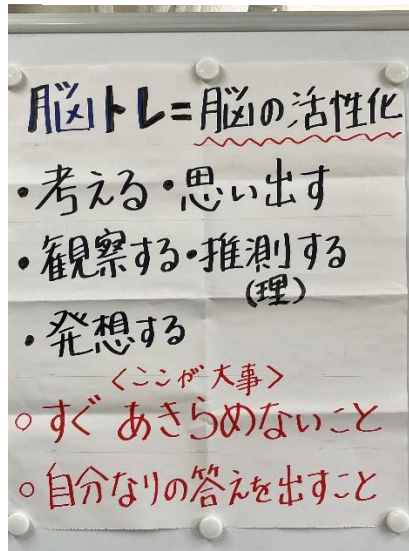 脳トレ=脳の活性化
・考える・思い出す
・観察する・推測する
(理)
・発想する
<ここが大事>
○すぐ あきらめないこと
○自分なりの答えを出すこと